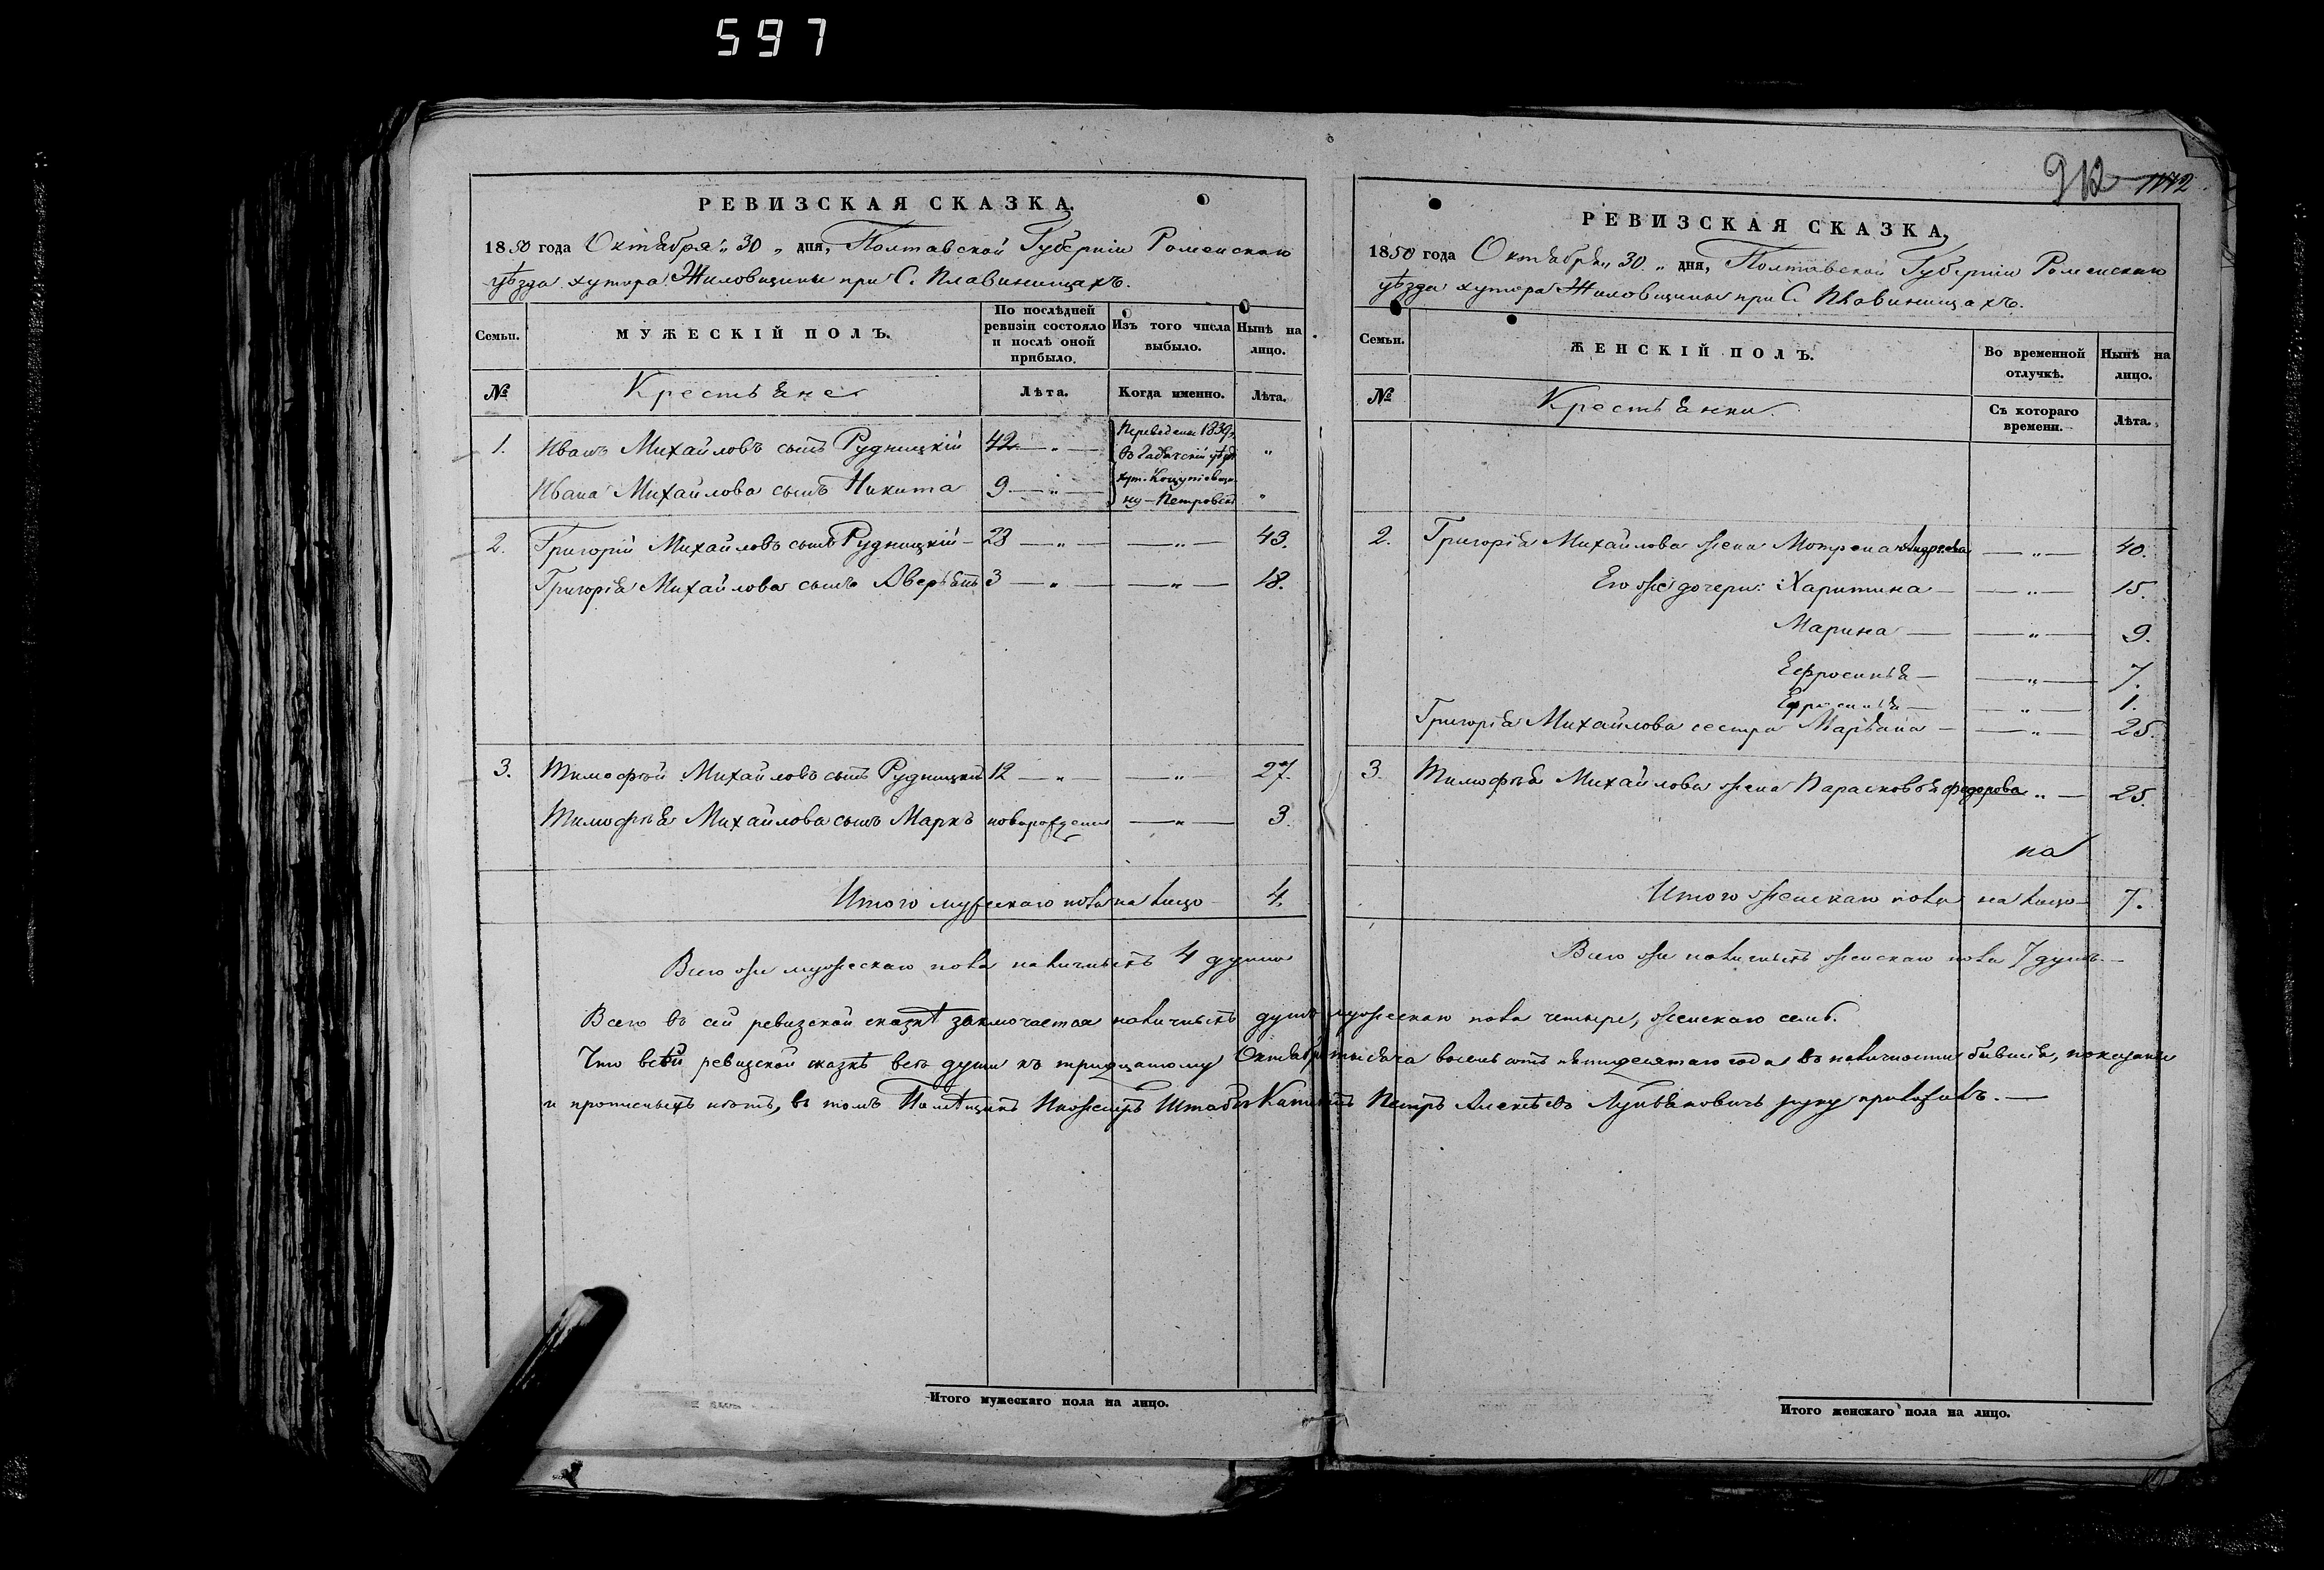 597
912 1172
РЕВИЗСКАЯ СКАЗКА.
1850 года Октября „ 30 „ дня, Полтавской Губерніи Роменскаго
уѣзда хутора Жиловщины при С. Плавинищахъ.
Семьи.
МУЖЕСКІЙ ПОЛЪ.
По послѣдней ревизіи состояло и послѣ оной прибыло.
Изъ того числа выбыло.
Нынѣ на лицо.
№
Крестьяне
Лѣта.
Когда именно.
Лѣта.
1. Иванъ Михайловъ сынъ Рудницкій 42 — „ — Переведены 1839 „
въ Гадячскій уѣздъ
Ивана Михайлова сынъ Никита 9 — „ — хут. „
ну — Петровскѣ
2. Григорій Михайловъ сынъ Рудницкій — 28 — „ — — „ — 43.
Григорія Михайлова сынъ Аверьянъ 3 — „ — — „ — 18.
3. Тимофѣй Михайловъ сынъ Рудницкій 12 — „ — — „ — 27.
Тимофѣя Михайлова сынъ Маркъ новорожденъ — „ — 3.
Итого мужескаго пола на лицо 4.
Всего же мужескаго пола наличныхъ 4 души
РЕВИЗСКАЯ СКАЗКА,
1850 года Октября „ 30 „ дня, Полтавской Губерніи Роменскаго
уѣзда хутора Жиловщины при С. Плавинищахъ.
Семьи.
ЖЕНСКІЙ ПОЛЪ.
Во временной отлучкѣ.
Нынѣ на лицо.
№
Крестьянки
Съ котораго времени.
Лѣта.
2. Григорія Михайлова жена Мотрона Андреева — „ — 40.
Его же дочери: Харитина — — „ — 15.
Марина — — „ — 9.
Ефросинья — — „ — 7.
Ефросинья — — „ — 1.
Григорія Михайлова сестра Марьяна — — „ — 25.
3. Тимофѣя Михайлова жена Парасковья Федорова „ — 25.
на
Итого женскаго пола на лицо 7.
Всего же наличныхъ женскаго пола 7 душъ. —
Всего въ сей ревизской сказкѣ заключается наличныхъ душъ мужескаго пола четыре, женскаго семь.
Что въ сей ревизской сказкѣ всѣ души къ тридцатому Октября тысяча восемь сотъ пятидесятаго года въ наличности бывшія, показаны
и прописныхъ нѣтъ, въ томъ Помѣщикъ Инженеръ Штабсъ Капитанъ Петръ Алексѣевъ руку приложилъ. —
Итого мужескаго пола на лицо.
Итого женскаго пола на лицо.